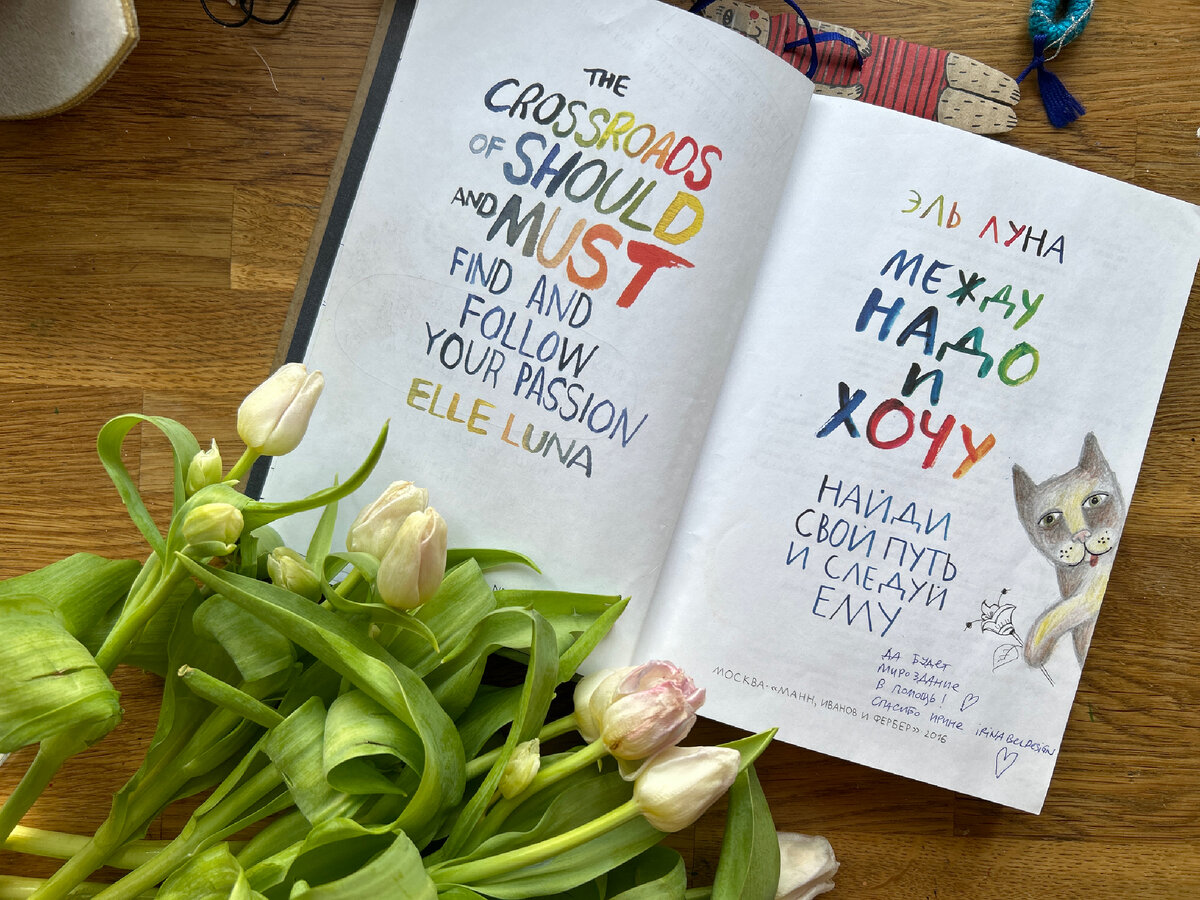 THE
CROSSROADS
OF SHOULD
AND MUST
FIND AND
FOLLOW
YOUR PASSION
ELLE LUNA
ЭЛЬ ЛУНА
МЕЖДУ
НАДО
И
ХОЧУ
НАЙДИ
СВОЙ ПУТЬ
И СЛЕДУЙ
ЕМУ
ДА БУДЕТ
МИРОЗДАНИЕ
В ПОМОЩЬ!
СПАСИБО ИРИНЕ IRINABELDESIGN
МОСКВА · «МАНН, ИВАНОВ И ФЕРБЕР» 2016